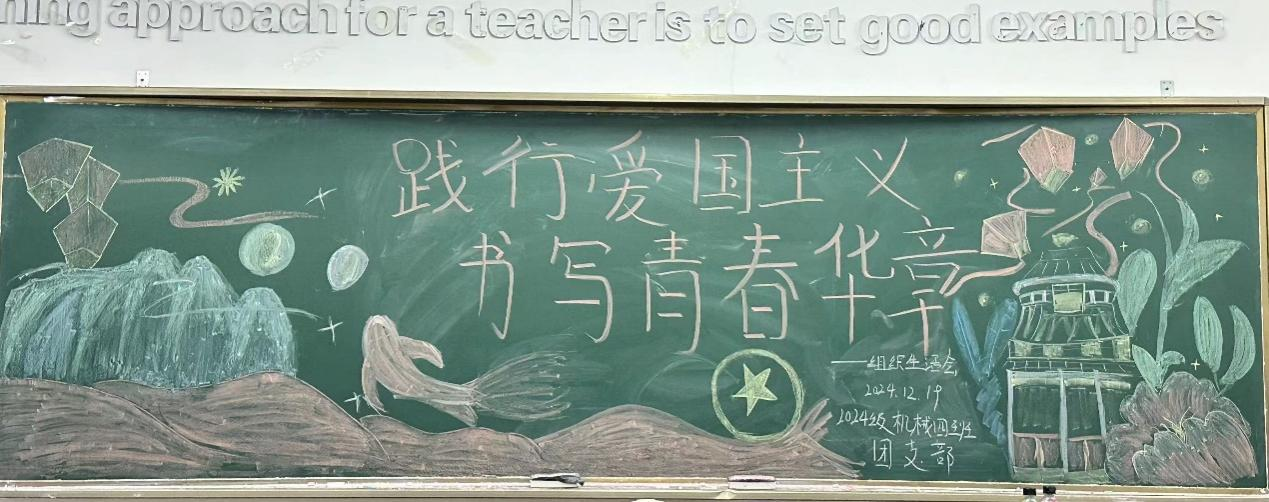 ning approach for a teacher is to set good examples
践行爱国主义
书写青春华章
——组织生活会
2024.12.19
2024级机械四班
团支部